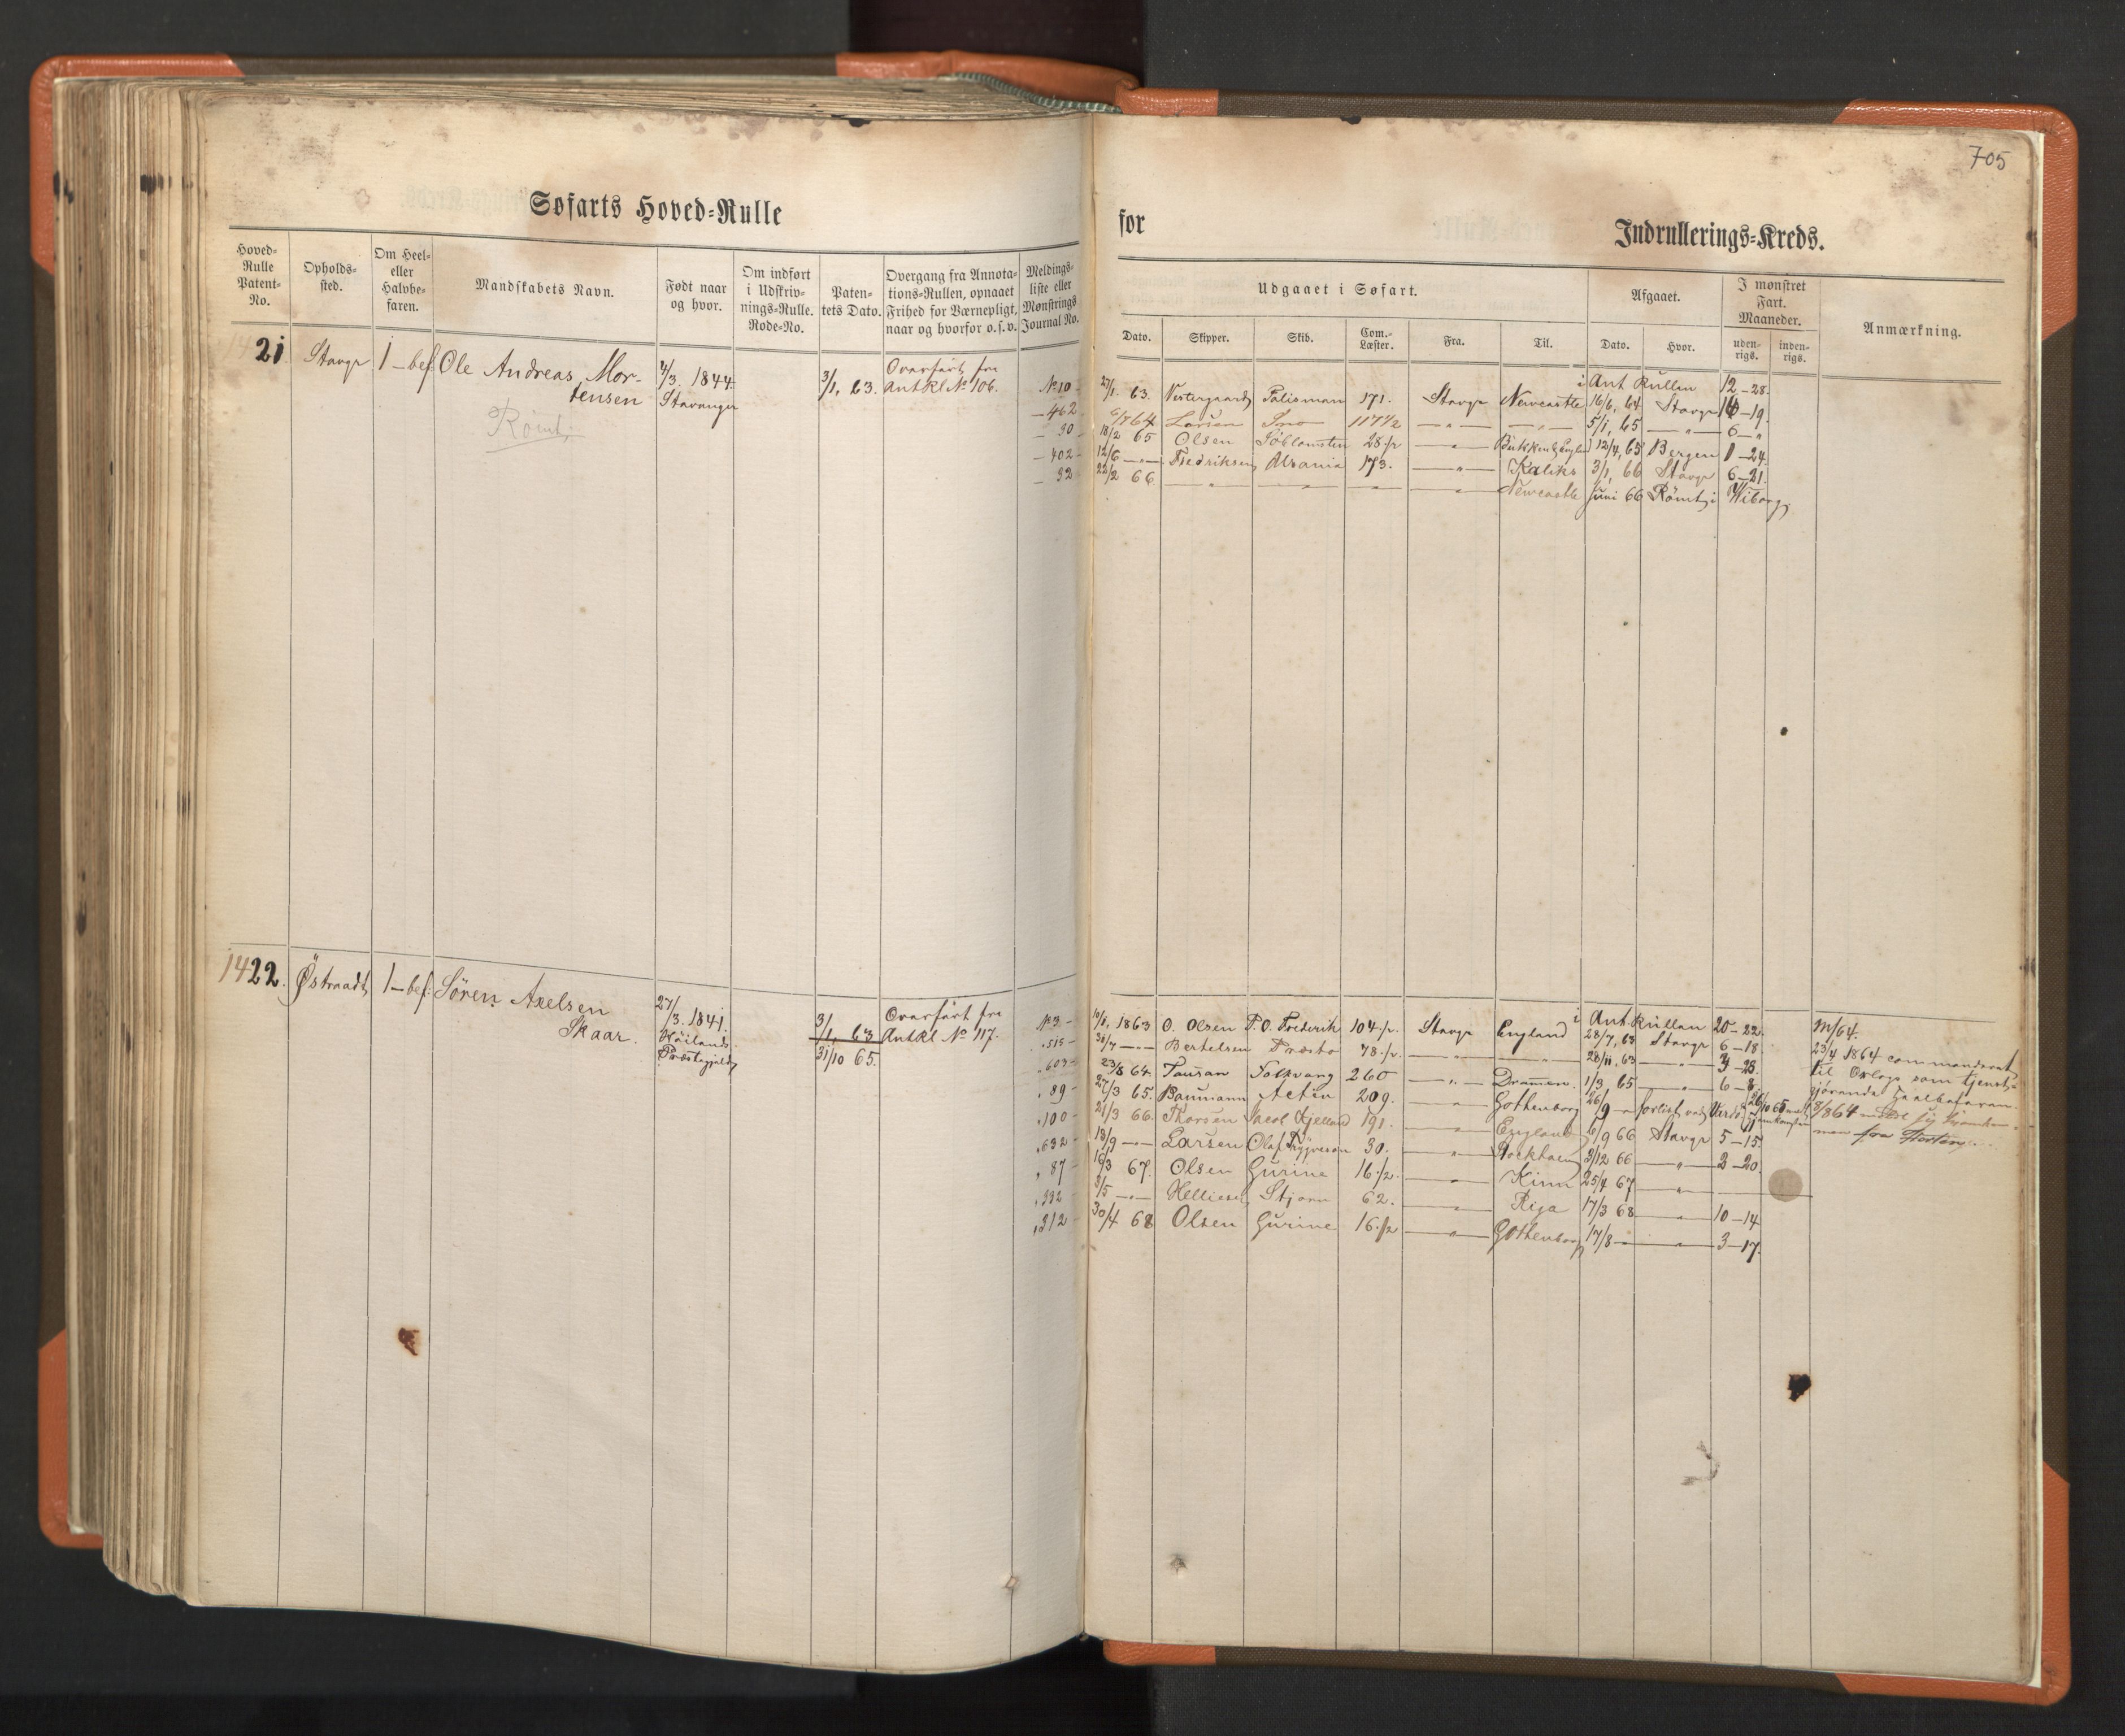 705
Søfarts Hoved=Rulle
for
Indrullerings=Kreds.
Hoved-
Rulle
Patent-
No.
Opholds-
sted.
Om Heel-
eller
Halvbe-
faren.
Mandskabets Navn.
Født naar
og hvor.
Om indført
i Udskriv-
nings-Rulle.
Rode-No.
Paten-
tets Dato.
Overgang fra Annota-
tions-Rullen, opnaaet
Frihed for Værnepligt,
naar og hvorfor o.s.v.
Meldings-
liste eller
Mønstrings
Journal No.
Udgaaet i Søfart.
Dato.
Skipper.
Skib.
Com.-
Læster.
Fra.
Til.
Afgaaet.
Dato.
Hvor.
I mønstret
Fart.
Maaneder.
uden-
rigs.
inden-
rigs.
Anmærkning.
1421. Stavgr 1–bef. Ole Andreas Mor-
tensen
Römt.
4/3. 1844.
Stavanger
3/1, 63.
Overført fra
Ant Rl No 106.
i Ant Rullen 12–28.
No 10 27/1. 63. Vestergaard Talisman 171. Stavgr Newcastle 16/6, 64 Stavgr 16–19.
– 462 6/7 64 Larsen Imo 117 1/2 – " – – " – 5/1, 65 – " – 6 – "
– 30 18/2 65 Olsen 28 1/2 – " – 12/4, 65 Bergen 1–24.
– 402 12/6 – " – Fredriksen Abrania 173. – " – Kaliks 3/1, 66 Stavgr 6–21.
– 32 22/2 66. – " – – " – – " – – " – Newcastle Juni 66 Römt i Wiborg
1422. Østraadt 1–bef. Sören Axelsen
Skaar.
27/3. 1841.
Höilands
Præstegjeld
3/1, 63
31/10 65.
Overført fra
Ant Rl No 117.
i Ant Rullen 20–22.
No 3 – 10/1, 1863 O. Olsen P. O. Frederik 104 1/2. Stavgr England 28/7, 63 Stavgr 6–18.
" 515 – 31/7 – " – Bertelsen Præsto 78 1/2. – " – – " – 28/11, 63 – " – 3–28.
" 603 – 23/8 64. Tausan Folkvang 260 – " – Drammen. 1/3, 65 – " – 6–8.
" 89 – 27/3 65. Baumann Activ 209. – " – Gothenborg 26/9 – " forlist ved
" 100 – 21/3 66. Thorsen Jacob Kjelland 191. – " – England 6/9 66 Stavgr 5–15.
" 632 – 18/9 – " – Larsen Olaf Trygveson 30. – " – Stockholm 3/12 66 – " – 2–20.
" 87 – 16/3 67. Olsen Gurine 16 1/2. – " – Kinn 25/4 67 – " –
" 332 – 3/5 – " – Helliesen Stjern 62. – " – Riga 17/3 68 – " – 10–14
" 312 – 30/4 68 Olsen Gurine 16 1/2 – " – Gothenborg 17/8 – " – – " – 3–17.
M/64.
23/4 1864 commanderet
til Orlogs som tjenst-
gjørende Halbefaren.
8/8 64
fra